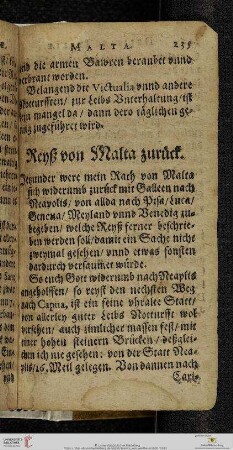 MALTA 235
und die armen Bawren beraubet unnd
verbrant werden.
Belangend die Victualia unnd andere
Notturfften / zur Leibs Unterhaltung / ist
kein mangel da / dann dero täglichen ge-
nug zugeführet wird.
Reyß von Malta zurück.
Jetzunder were mein Rath von Malta
sich widerumb zurück mit Galleen nach
Neapolis / von allda nach Pisa / Luca /
Genena / Meyland unnd Venedig zu
begeben / welche Reyß ferner beschrie-
ben werden soll / damit ein Sache nicht
zweymal gesehen / unnd etwas sonsten
dardurch versäumet würde.
So euch Gott widerumb nach Neaplis
angeholffen / so reyst den nechsten Weg
nach Capua, ist ein seine uhralte Statt /
von allerley guter Leibs Notturfft wol
versehen / auch zimlicher massen fest / mit
einer hohen steinern Brücken / deßglei-
chen ich nie gesehen: von der Statt Nea-
plis / 16. Meil gelegen. Von dannen nach